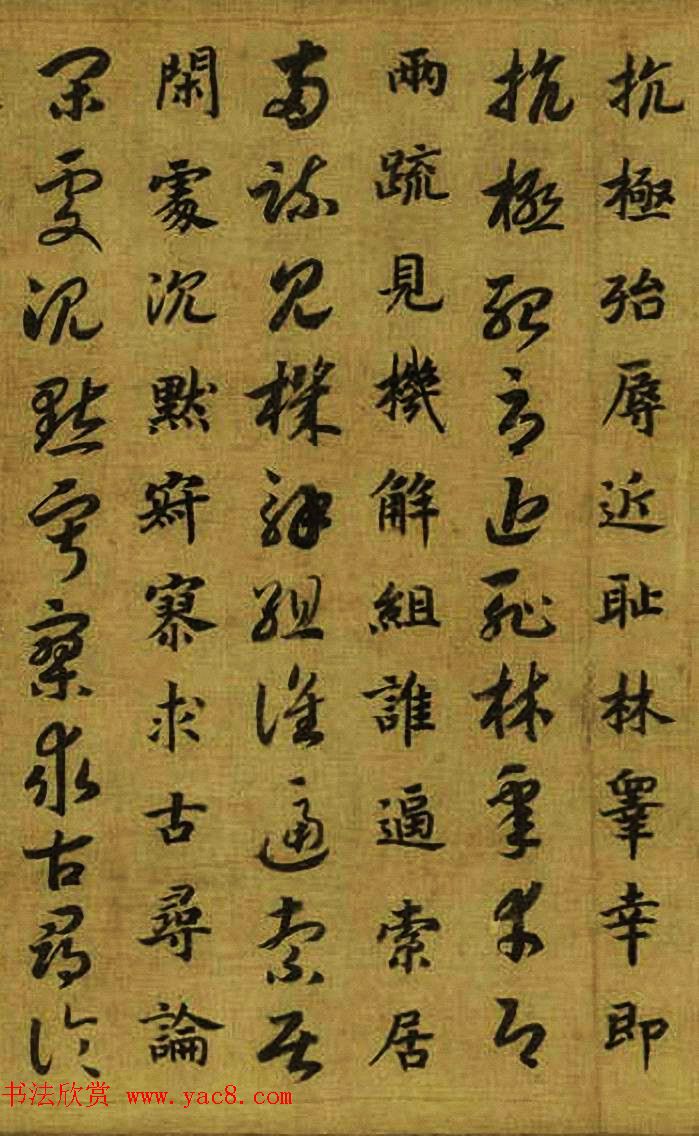 抗極殆辱近耻林睾幸即
抗極殆辱近耻林睾幸即
兩疏見機解組誰逼索居
兩疏見機解組誰逼索居
閑處沉默寂寥求古尋論
閑處沉默寂寥求古尋論
书法欣赏 www.yac8.com